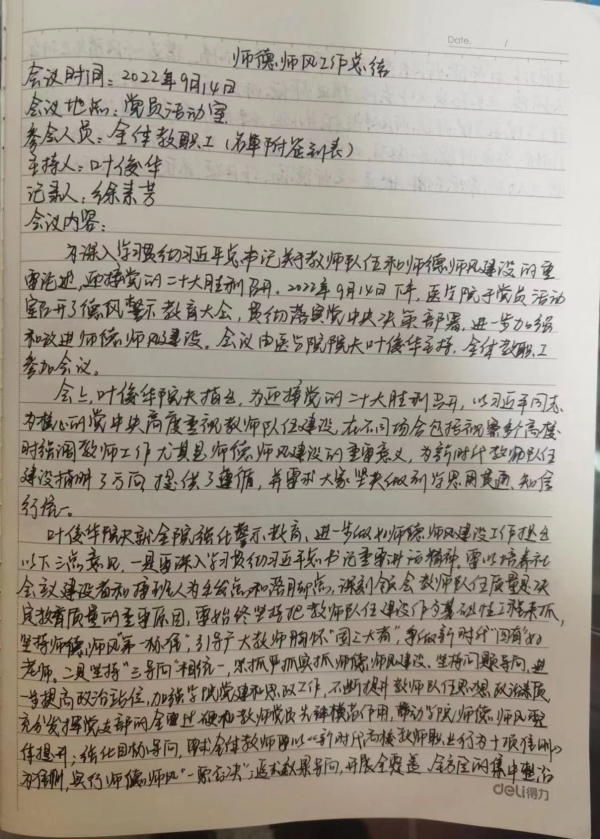 Date.    /
师德师风工作总结
会议时间：2022年9月14日
会议地点：党员活动室
参会人员：全体教职工（名单附签到表）
主持人：叶俊华
记录人：徐素芳
会议内容：
为深入学习贯彻习近平总书记关于教师队伍和师德师风建设的重
要论述，迎接党的二十大胜利召开。2022年9月14日下午，医学院于党员活动
室召开了德风警示教育大会，贯彻落实党中央决策部署，进一步加强
和改进师德师风建设。会议由医学院院长叶俊华主持，全体教职工
参加会议。
会上，叶俊华院长指出，为迎接党的二十大胜利召开，以习近平同志
为核心的党中央高度重视教师队伍建设，在不同场合包括视察等高度
时强调教师工作尤其是师德师风建设的重要意义，为新时代教师队伍
建设指明了方向，提供了遵循，并要求大家坚决做到学思用贯通、知信
行统一。
叶俊华院长就全院强化警示教育、进一步做好师德师风建设工作提出
以下三点意见，一是要深入学习贯彻习近平总书记重要讲话精神。要以培养社
会主义建设者和接班人为出发点和落脚点，深刻领会教师队伍质量是决
定教育质量的重要原因，要始终坚持把教师队伍建设作为基础性工程来抓，
坚持师德师风“第一标准”，引导广大教师胸怀“国之大者”，争做新时代“四有”好
老师。二是坚持“三导向”相统一，常抓严抓实抓师德师风建设。坚持问题导向，进
一步提高政治站位，加强学院党建和思政工作，不断提升教师队伍思想政治素质
充分发挥党支部的全面过硬和教师党员先锋模范作用，带动学院师德师风整
体提升；强化目标导向，要求全体教师要以《新时代高校教师职业行为十项准则》
为准则，实行师德师风“一票否决”；追求效果导向，开展全覆盖、全方位的集中整治
deli得力